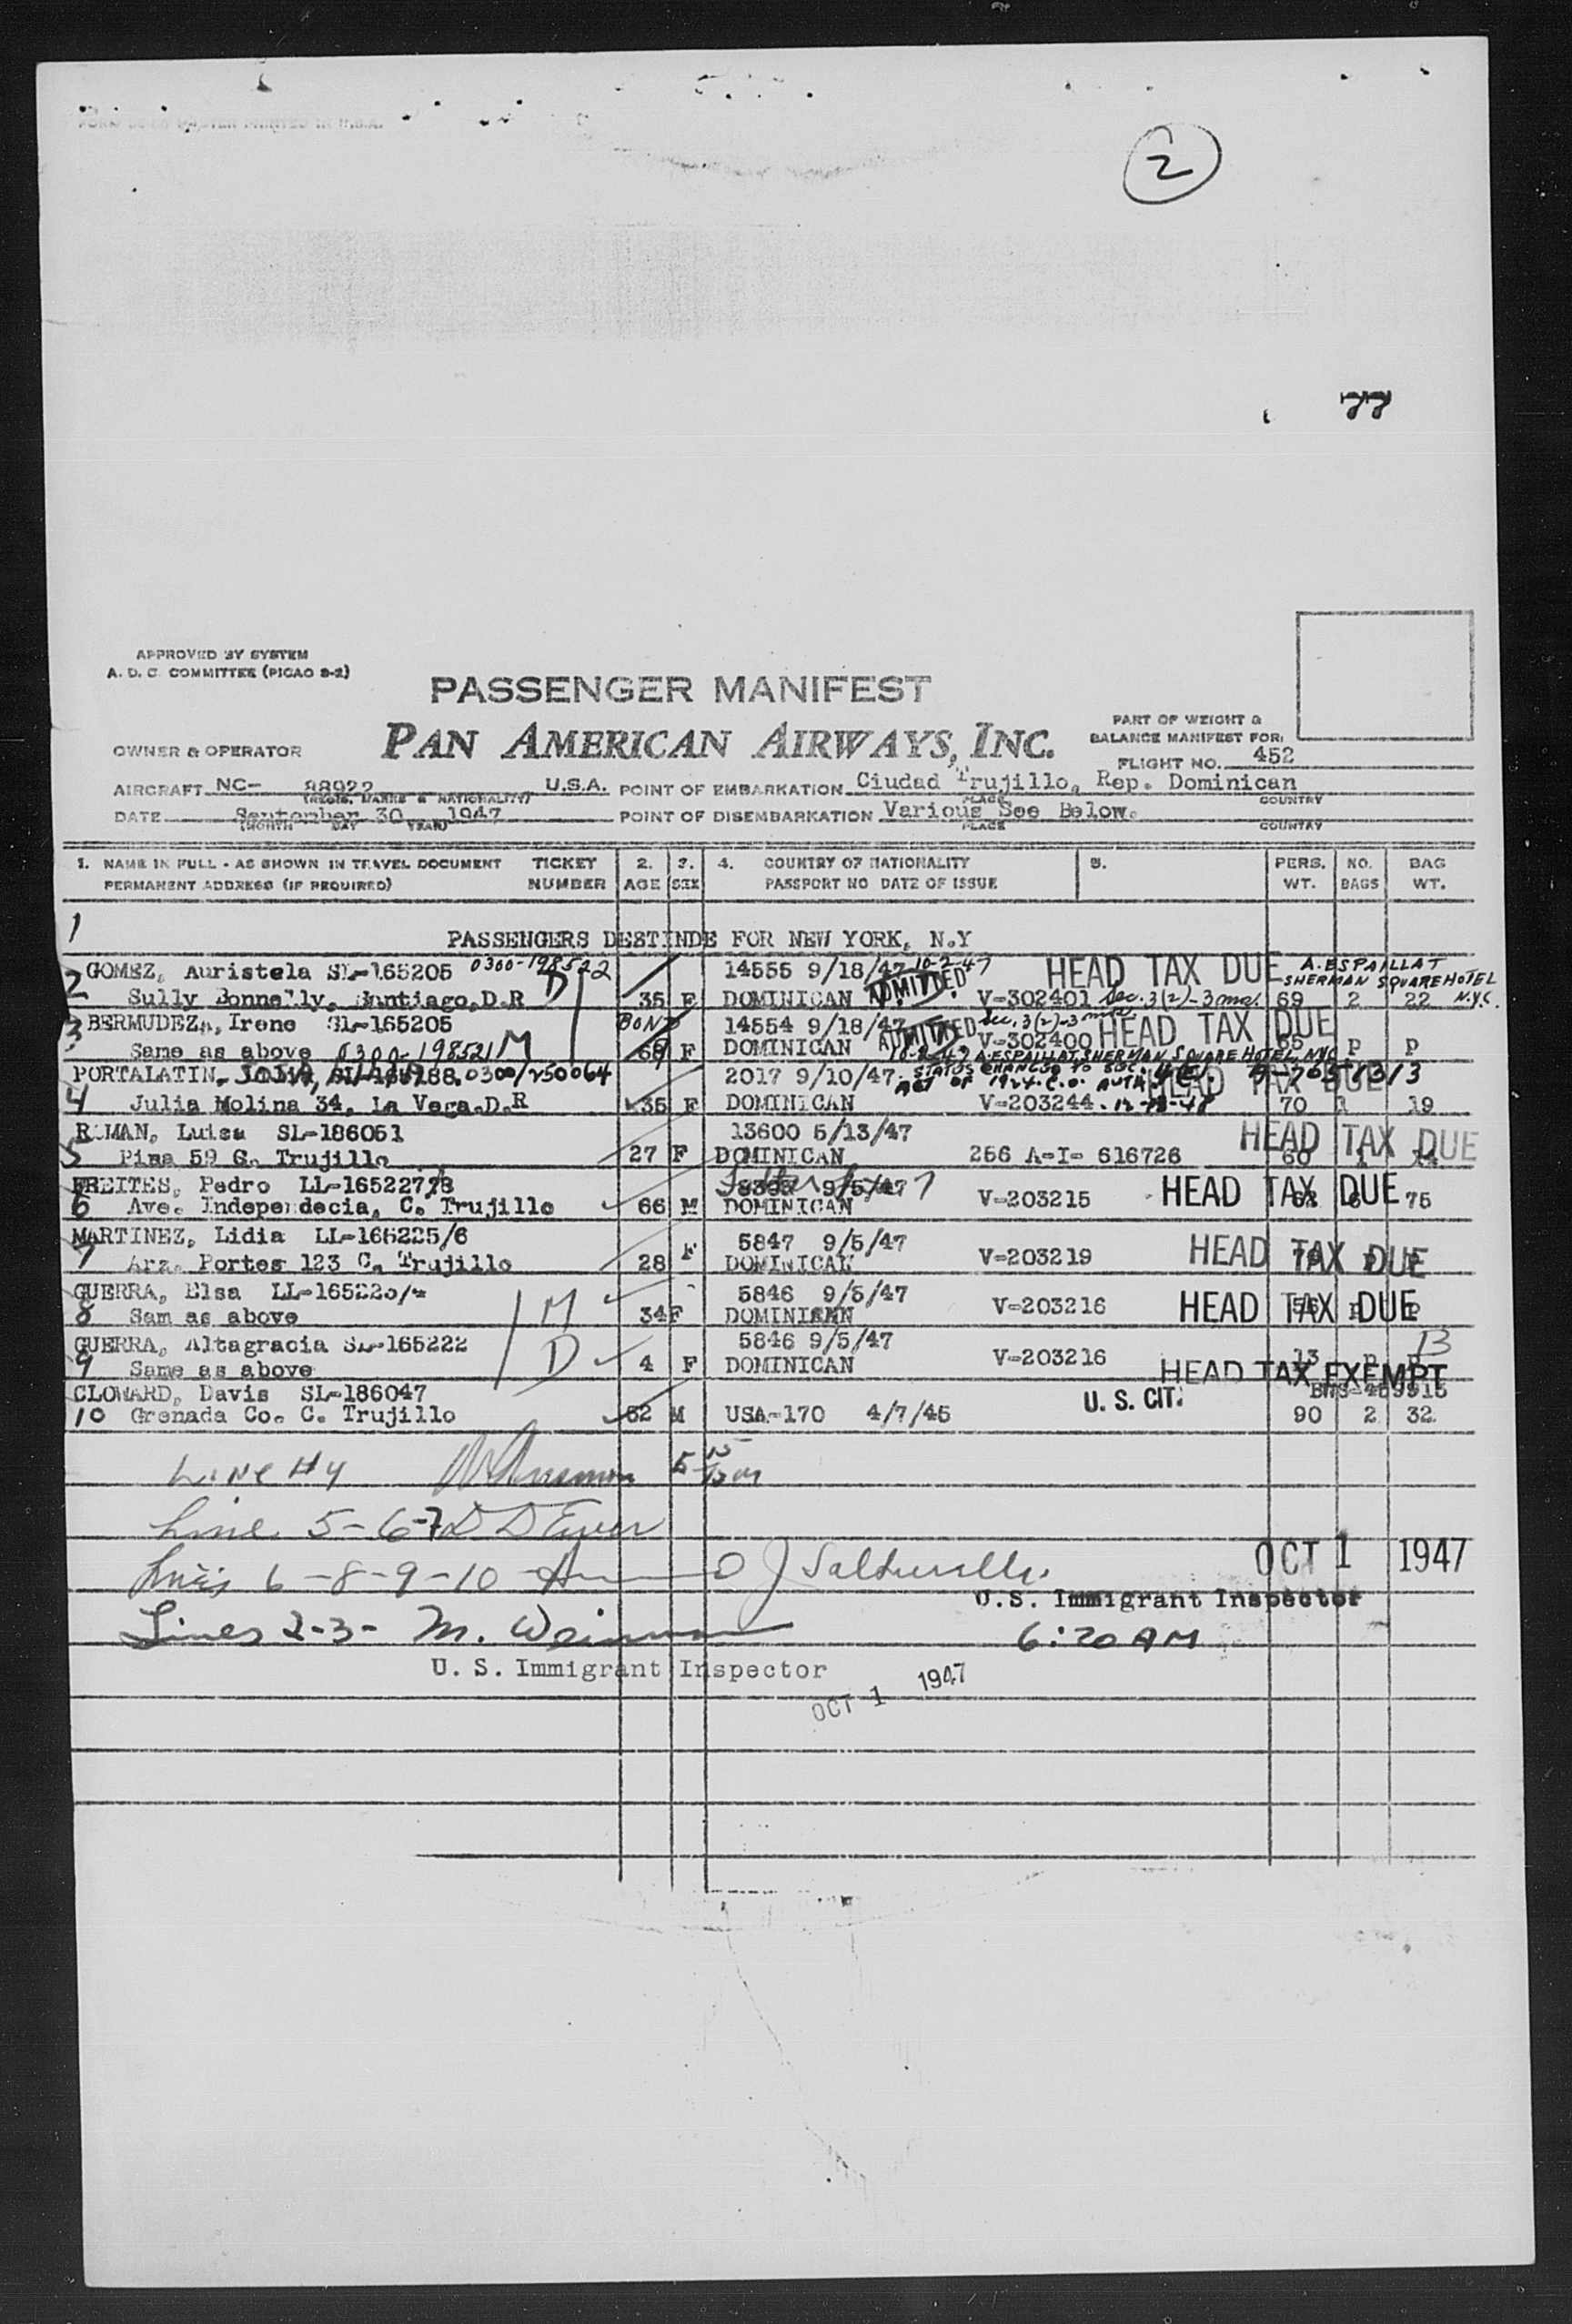 2
77
APPROVED BY SYSTEM
A. D. C. COMMITTEE (PICAO 9-2)
PASSENGER MANIFEST
PAN AMERICAN AIRWAYS, INC.
PART OF WEIGHT &
BALANCE MANIFEST FOR:
OWNER & OPERATOR
FLIGHT NO. 452
AIRCRAFT NC- 88922 U.S.A. POINT OF EMBARKATION Ciudad Trujillo, Rep. Dominican
(REGIS. MARKS & NATIONALITY) PLACE COUNTRY
DATE September 30 1947 POINT OF DISEMBARKATION Various See Below.
(MONTH DAY YEAR) PLACE COUNTRY
1. NAME IN FULL - AS SHOWN IN TRAVEL DOCUMENT TICKET 2. 3. 4. COUNTRY OF NATIONALITY 5. PERS. NO. BAG
PERMANENT ADDRESS (IF REQUIRED) NUMBER AGE SEX PASSPORT NO DATE OF ISSUE WT. BAGS WT.
1
PASSENGERS DESTINDE FOR NEW YORK, N.Y
GOMEZ, Auristela SL-165205 0300-198522 14555 9/18/47 10-2-47 HEAD TAX DUE A. ESPAILLAT
2 Sully Bonnelly, Santiago,D.R D 35 F DOMINICAN ADMITTED V-302401 Sec. 3(2)-3 mos. 69 2 22 SHERMAN SQUARE HOTEL N.Y.C.
BERMUDEZ, Irene SL-165205 BOND 14554 9/18/47 ADMITTED Sec. 3(2)-3 mos HEAD TAX DUE
3 Same as above 0300-198521 M 68 F DOMINICAN V-302400 65 p p
10-2-47 A. ESPAILLAT, SHERMAN SQUARE HOTEL, NYC
PORTALATIN, 0300/250064 2017 9/10/47 STATUS CHANGED TO SEC. HEAD TAX DUE
ACT OF 1924. C.O. AUTH
4 Julia Molina 34, La Vega.D.R 35 F DOMINICAN V-203244 70 1 19
ROMAN, Luisa SL-186051 13600 5/13/47 HEAD TAX DUE
5 Pina 59 C. Trujillo 27 F DOMINICAN 256 A-I- 616726 60 1
FREITES, Pedro LL-165227/8 9/5/47 HEAD TAX DUE
6 Ave. Independecia, C. Trujillo 66 M DOMINICAN V-203215 6 75
MARTINEZ, Lidia LL-165225/6 5847 9/5/47 HEAD TAX DUE
7 Arz. Portes 123 C. Trujillo 28 F DOMINICAN V-203219
GUERRA, Elsa 5846 9/5/47 HEAD TAX DUE
8 Sam as above M 34 F DOMINICAN V-203216
GUERRA, Altagracia SL-165222 5846 9/5/47 13
9 Same as above D 4 F DOMINICAN V-203216 13 p p HEAD TAX EXEMPT
CLOWARD, Davis SL-186047 U. S. CIT. BHS-459915
10 Grenada Co. C. Trujillo 52 M USA-170 4/7/45 90 2 32
Line #4
Line 5-6-7
Lines 6-8-9-10 OCT 1 1947
U.S. Immigrant Inspector
Lines 2-3- M. 6:20 AM
U. S. Immigrant Inspector
OCT 1 1947